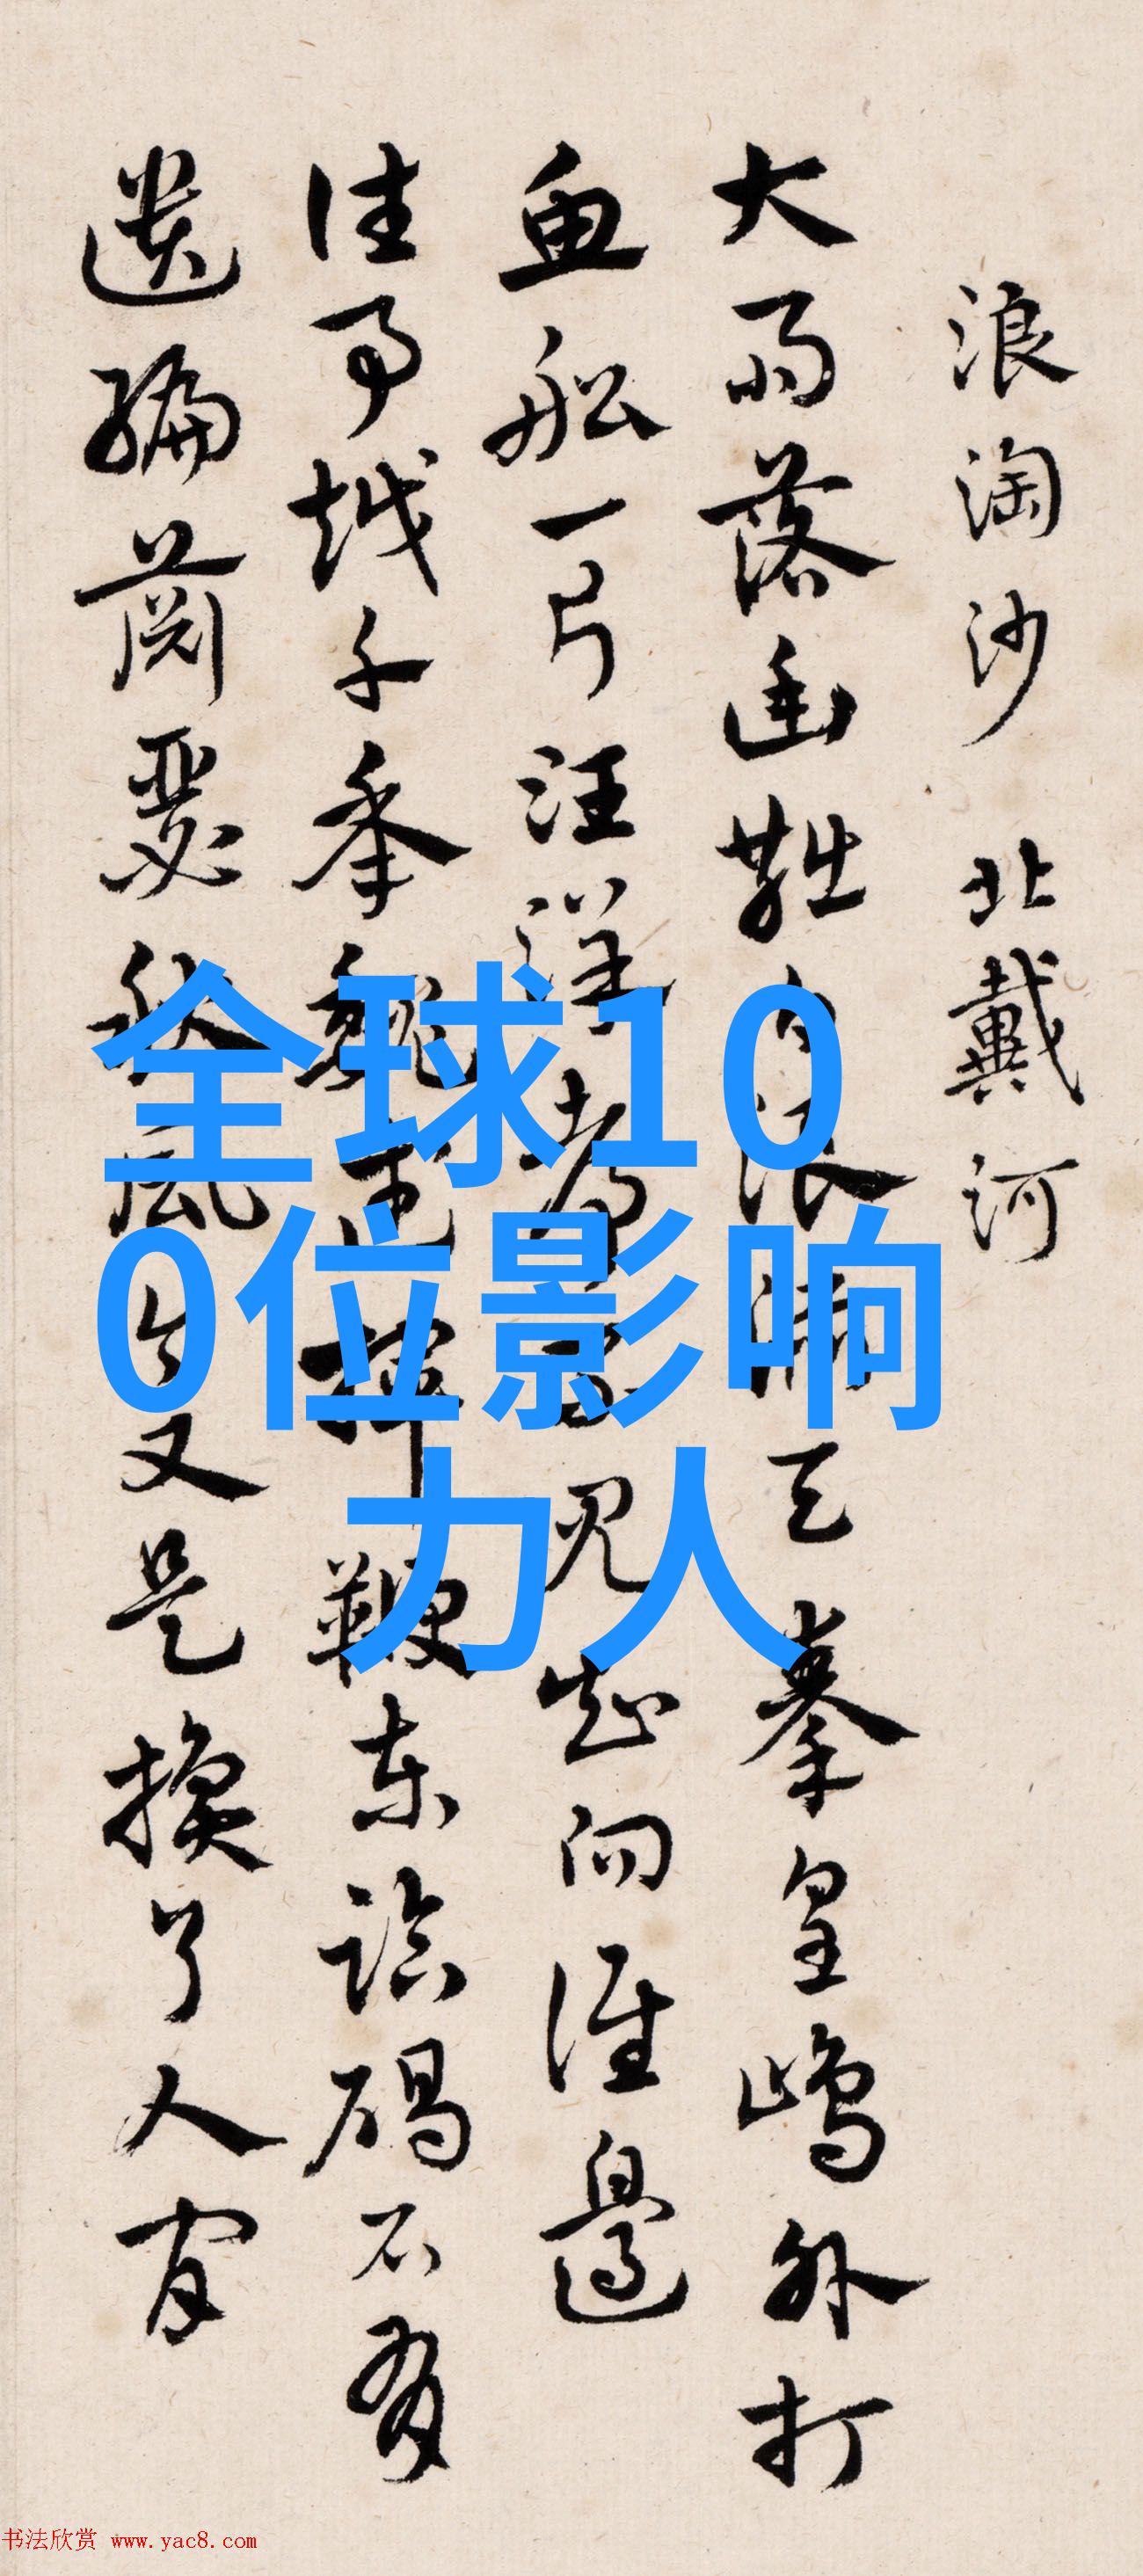 浪淘沙 北戴河
大雨落幽燕白浪滔天秦皇嶋外打
魚船一片汪洋都不見知向誰邊
往事越千年魏武揮鞭東臨碣石有
遺編蕭瑟秋風今又是換了人間
全球10
0位影响
力人
书法欣赏 www.yac8.com